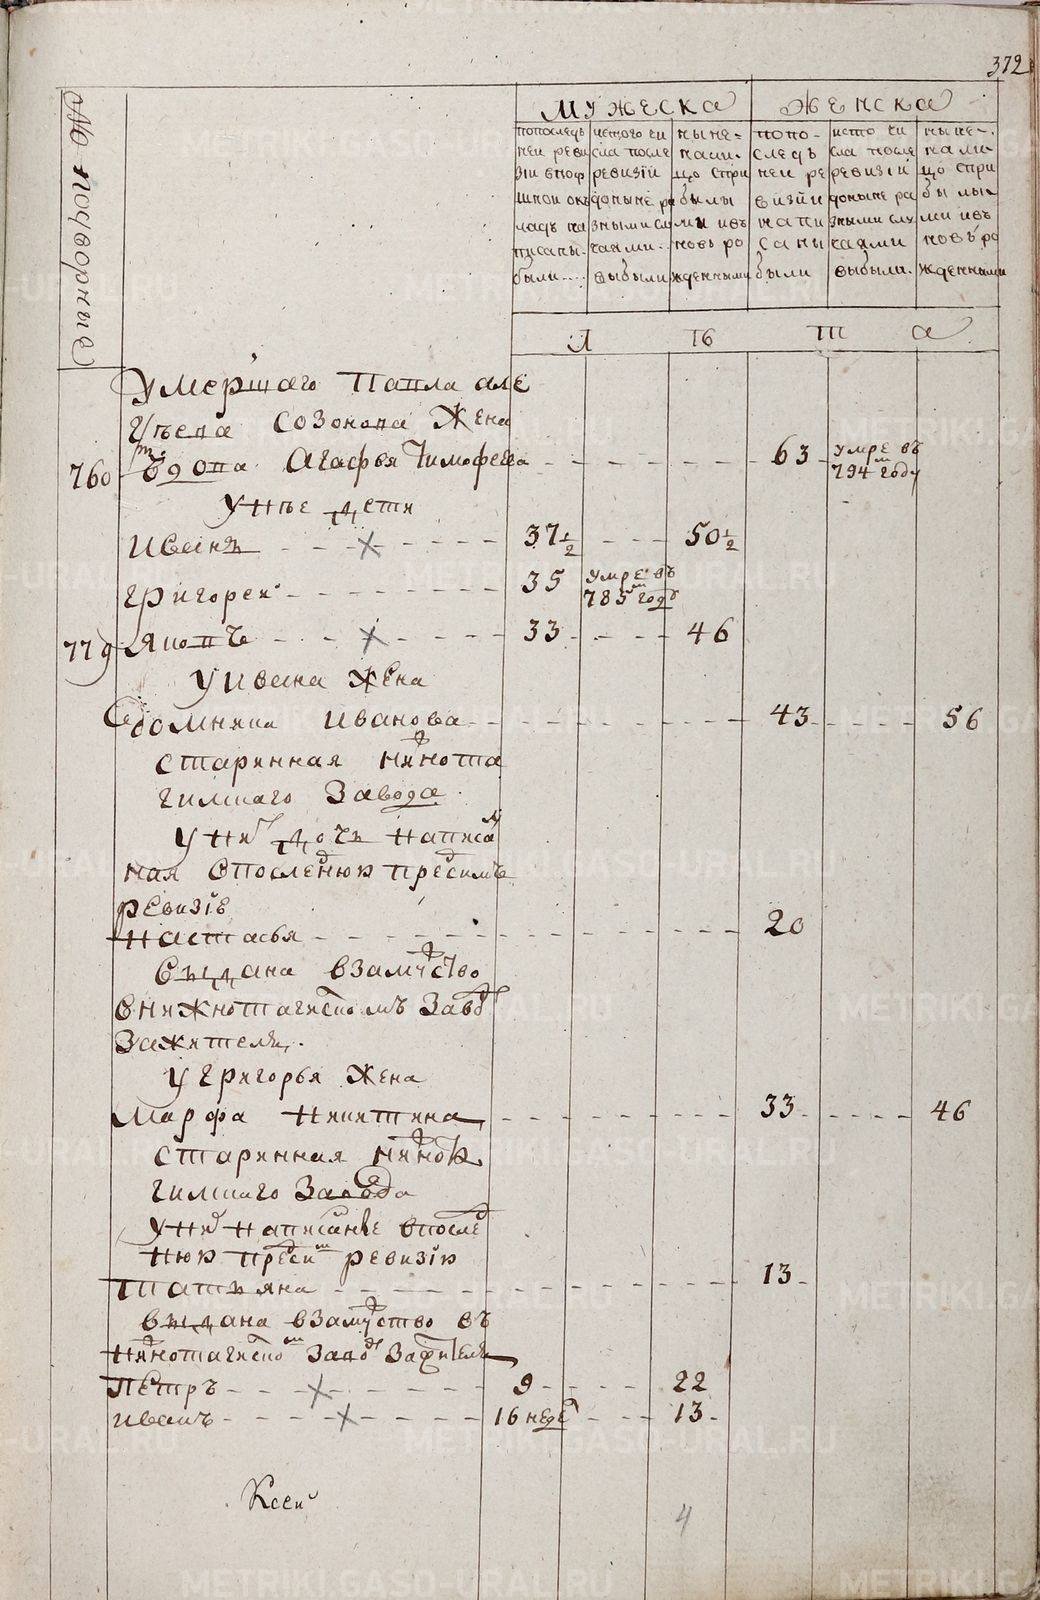 372
№ подворные
МУЖЕСКА
ЖЕНСКА
попоследъ
ней реви
зіи вподу
шной окъ
ладъ на
писаны
были
истого чи
сла после
ревизіи
доныне ра
зными слу
чаями
выбыли
ныне
нали
цо спри
былы
ми ивъ
новь ро
жденными
попо
следъ
ней ре
визіи
напи
саны
были
исто чи
сла после
ревизіи
доныне ра
зными слу
чаями
выбыли
ныне
нали
цо спри
былы
ми ивъ
новь ро
жденными
Л Ѣ Т А
Умершаго Павла але
ѯѣева Созонова Жена
760 вдова Агафья Тимофеева 63 умре въ 794 году
У нѣе дети
Иванъ 37½ 50½
Григореи 35 умре въ 785 годъ
779 Яковъ 33 46
У Ивана Жена
Домника Иванова 43 56
старинная нижнота
гилшаго Завода
У них дочь написа
ная впоследнюю предсимъ
ревизіе
Настасья 20
Выдана взамужство
внижнотагилскомъ Заводе
Зажителя
У Григорья Жена
Марфа Никитина 33 46
старинная нижнот
гилшаго Завода
У них написаные впослед
нюю предсим ревизію
Татьяна 13
выдана взамужство въ
нижнотагилском Заводе Зажителя
Петръ 9 22
Иванъ 16 неде 13
Ксен
4
METRIKI.GASO-URAL.RU